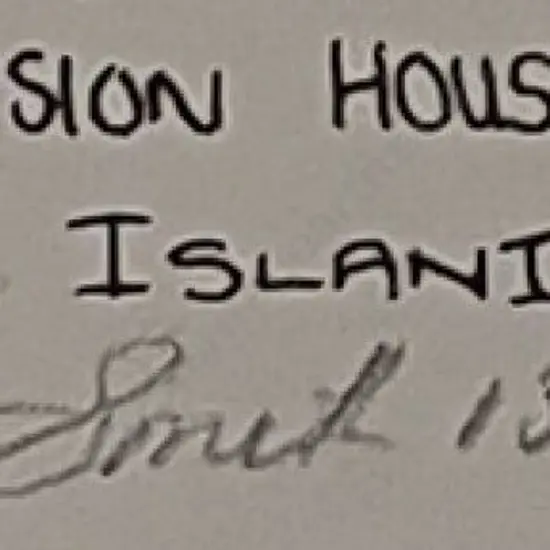 SION HOUS
ISLAND
Smith 13